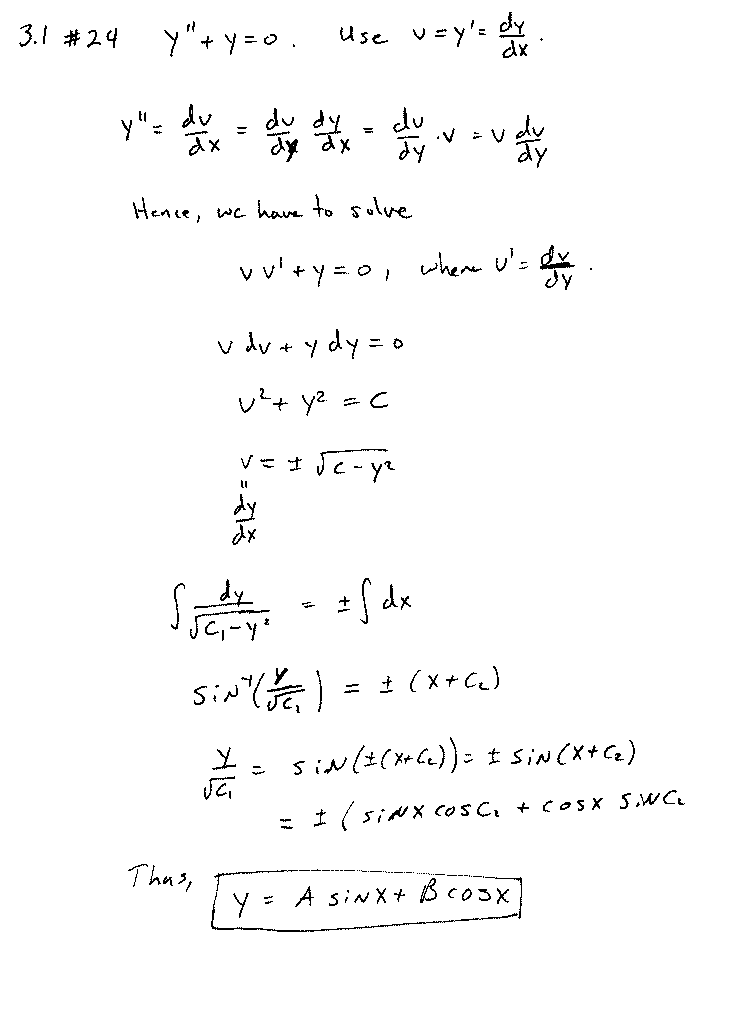 3.1 #24 y'' + y = 0. Use v = y' = dy/dx.
y'' = dv/dx = dv/dy dy/dx = dv/dy · v = v dv/dy
Hence, we have to solve
v v' + y = 0, where v' = dv/dy.
v dv + y dy = 0
v² + y² = C
v = ± √(C - y²)
"
dy/dx
∫ dy/√(C₁ - y²) = ± ∫ dx
SiN⁻¹(y/√C₁) = ± (x + C₂)
y/√C₁ = SiN(±(x + C₂)) = ± SiN(x + C₂)
= ± (SiNX COSC₂ + COSX SiNC₂
Thus,
y = A SiNX + B COSX